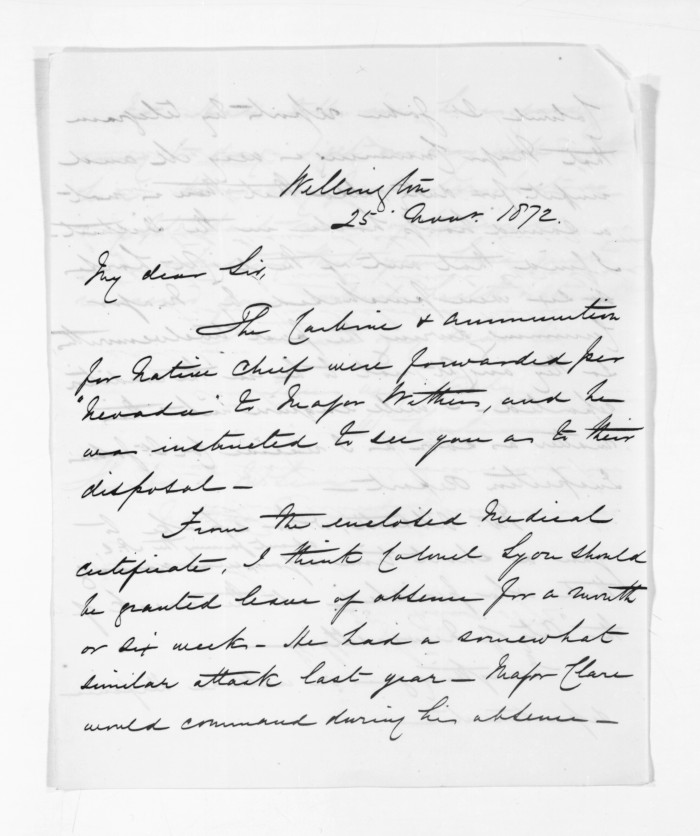 Wellington
25 Novr. 1872.
My dear Sir,
The Carbine & ammunition
for Native Chief were forwarded per
"Nevada" to Major Withers, and he
was instructed to see you as to their
disposal —
From the enclosed Medical
certificate, I think Colonel Lyon should
be granted leave of absence for a month
or six weeks — He had a somewhat
similar attack last year — Major Clare
would command during his absence —